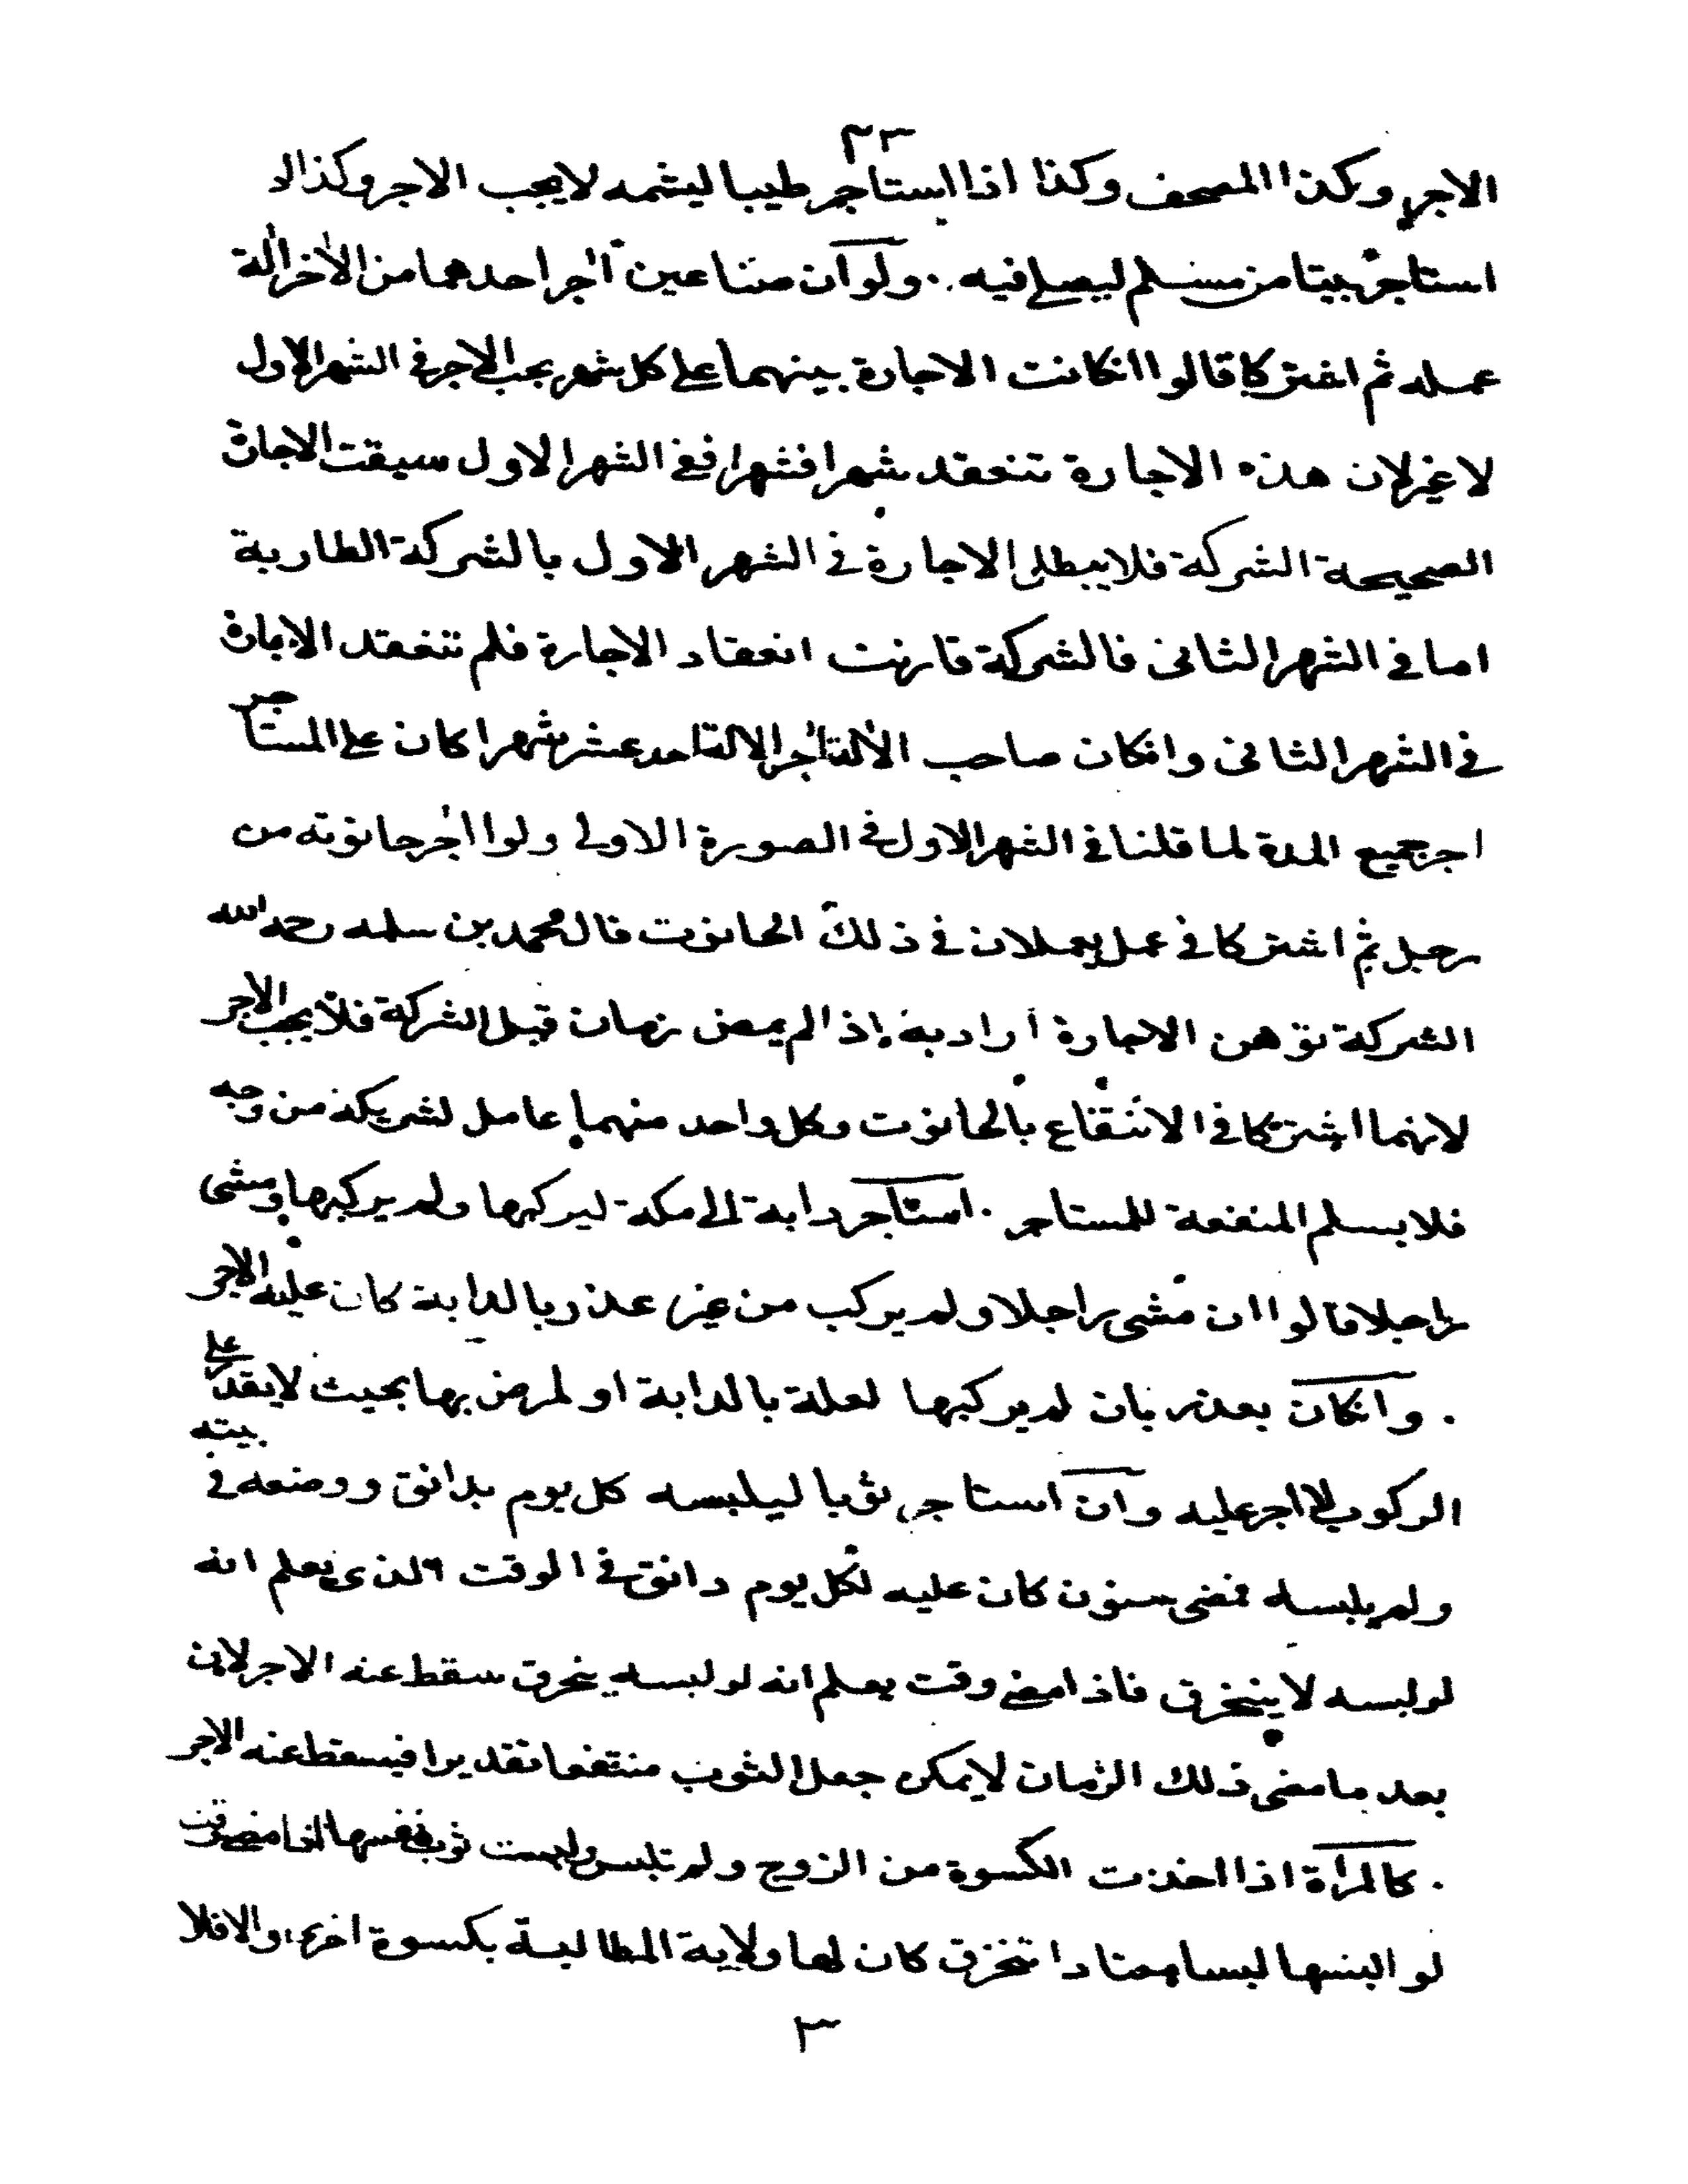 ٢٣
الاجر وكذا المصحف وكذا اذا استاجر طيبا ليشمه لا يجب الاجر وكذا لو
استاجر بيتا من مسلم ليصلي فيه . ولو ان صناعين آجر احدهما من الاخر الة
عمله ثم اشتركا قالوا انكانت الاجارة بينهما على كل شهر يجب الاجر في الشهر الاول
لا غير لان هذه الاجارة تنعقد شهرا فشهرا ففي الشهر الاول سبقت الاجارة
الصحيحة الشركة فلا يبطل الاجارة في الشهر الاول بالشركة الطارية
اما في الشهر الثاني فالشركة قارنت انعقاد الاجارة فلم تنعقد الاجارة
في الشهر الثاني وانكان صاحب الالة آجر الالة احد عشر شهرا كان على المستاجر
اجر جميع المدة لما قلنا في الشهر الاول في الصورة الاولى ولو اجر حانوته من
رجل ثم اشتركا في عمل يعملان في ذلك الحانوت قال محمد بن سلمه رحمه الله
الشركة توهن الاجارة اراد به اذا لم يمض زمان قبل الشركة فلا يجب الاجر
لانهما اشتركا في الانتفاع بالحانوت وكل واحد منهما عامل لشريكه من وجه
فلا يسلم المنفعة للمستاجر . استاجر دابة الى مكة ليركبها ولم يركبها ومشى
راجلا قالوا ان مشى راجلا ولم يركب من غير عذر بالدابة كان عليه الاجر
. وانكان بعذر بان لم يركبها لعلة بالدابة او لمرض بها بحيث لا يقدر على
الركوب لا اجر عليه وان استاجر ثوبا ليلبسه كل يوم بدانق ووضعه في بيته
ولم يلبسه فمضى سنون كان عليه لكل يوم دانق في الوقت الذي يعلم انه
لو لبسه لا ينخرق فاذا مضى وقت يعلم انه لو لبسه ينخرق سقط عنه الاجر لان
بعد ما مضى ذلك الزمان لا يمكن جعل الثوب منتفعا تقديرا فيسقط عنه الاجر
. كالمراة اذا اخذت الكسوة من الزوج ولم تلبس ولبست ثوب نفسها اذا مضى وقت
لو البسها لبسا معتادا تتخرق كان لها ولاية المطالبة بكسوة اخرى والا فلا
٣